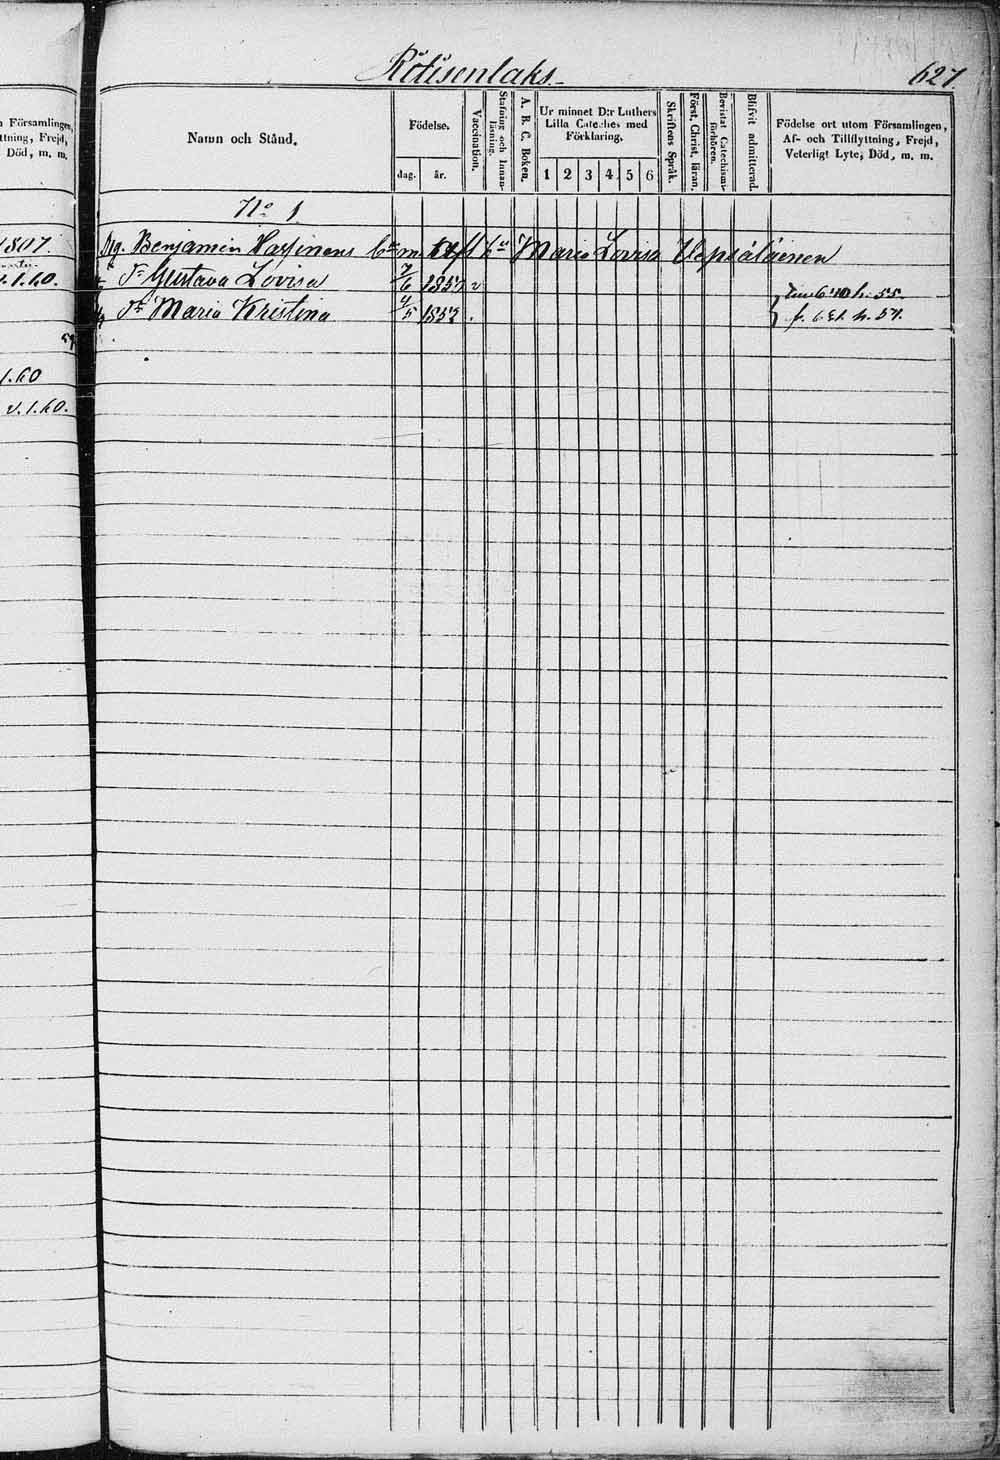 Rötisenlaks
627.
n Församlingen,
ttning, Frejd,
Död, m. m.
1807.
v. 1.60.
1.60
v. 1.60.
Namn och Stånd.
Födelse.
dag.
år.
Vaccination.
Stafning och Innanläsning.
A. B. C. Boken.
Ur minnet D:r Luthers
Lilla Cateches med
Förklaring.
1 2 3 4 5 6
Skriftens Språk.
Först. Christ. läran.
Bevistat Catechismiförhören.
Blifvit admitterad.
Födelse ort utom Församlingen,
Af- och Tillflyttning, Frejd,
Veterligt Lyte, Död, m. m.
No 1
Benjamin Maria Lovisa
Gustava Lovisa 7/6 1857 v
Maria Kristina 4/5 1852.
h. 55.
h. 57.